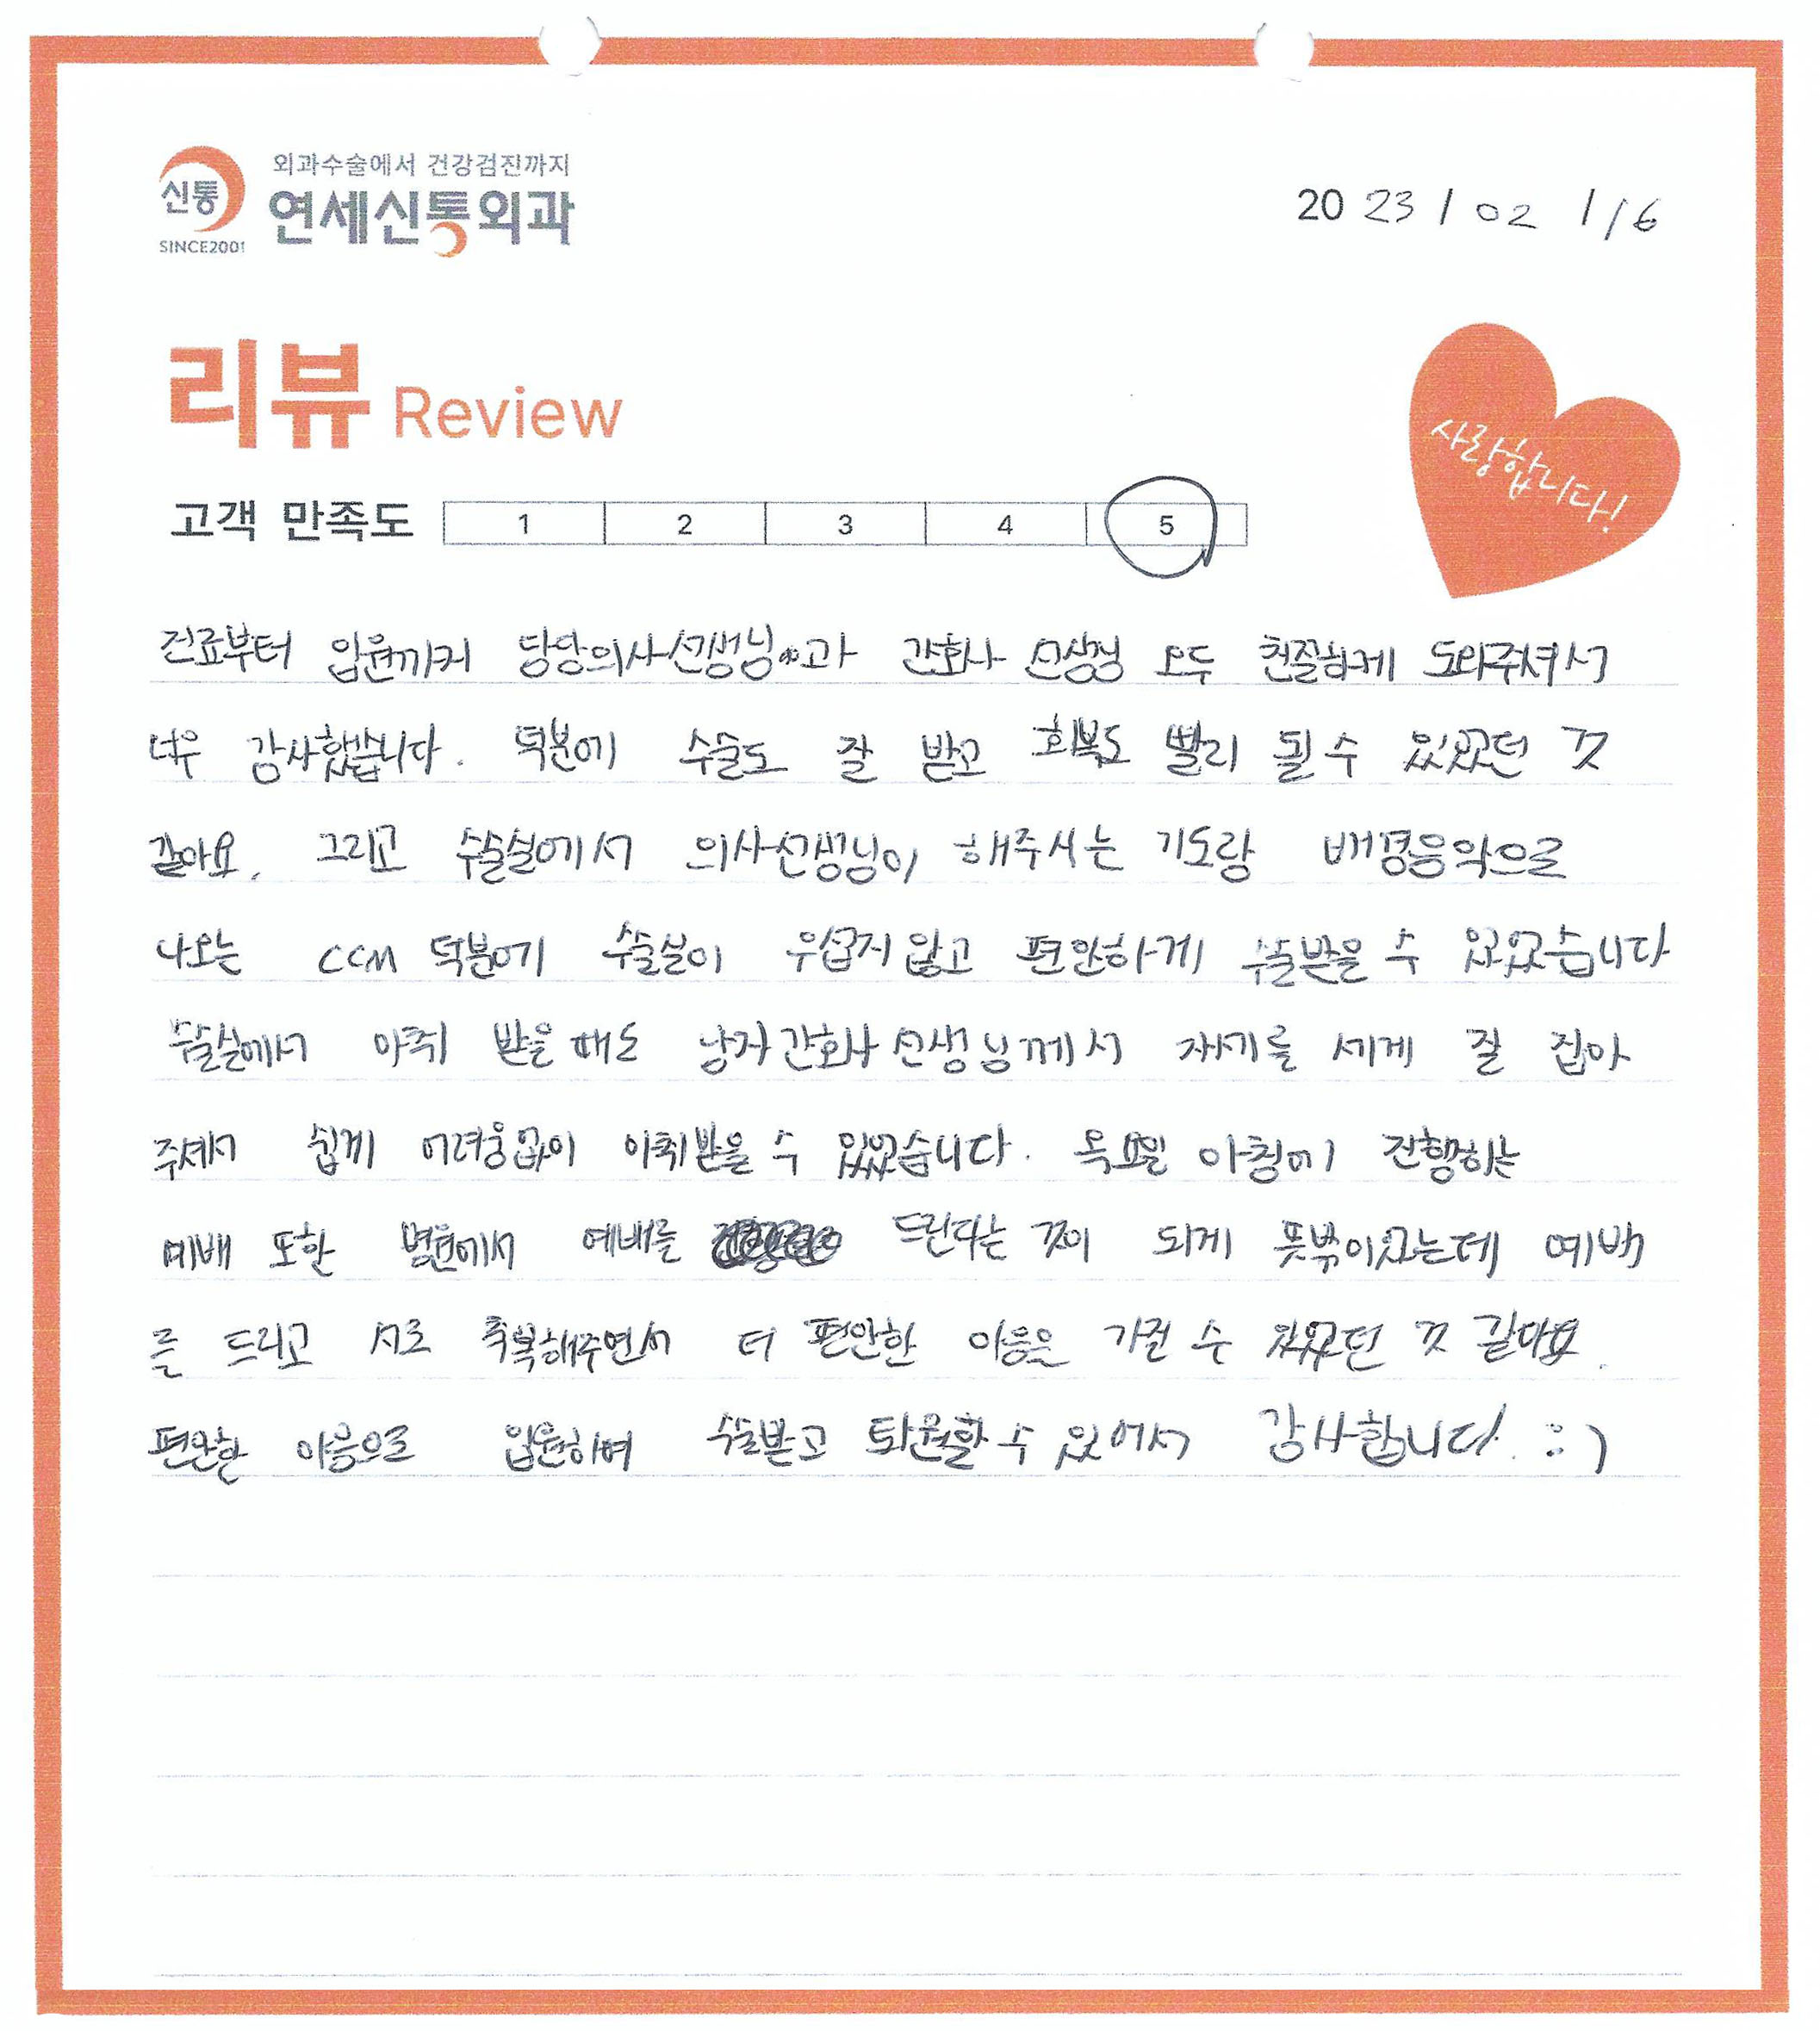 외과수술에서 건강검진까지
신통
연세신통외과
SINCE2001
2023 / 02 / 16
리뷰 Review
사랑합니다!
고객 만족도 1 2 3 4 5
진료부터 입원까지 담당의사선생님과 간호사 선생님 모두 친절하게 도와주셔서
너무 감사했습니다. 덕분에 수술도 잘 받고 회복도 빨리 될 수 있었던 것
같아요. 그리고 수술실에서 의사선생님이 해주시는 기도랑 배경음악으로
나오는 CCM 덕분에 수술실이 무섭지 않고 편안하게 수술받을 수 있었습니다
수술실에서 마취 받을 때도 남자간호사 선생님께서 자세를 세게 잘 잡아
주셔서 쉽게 어려움없이 마취받을 수 있었습니다. 목요일 아침에 진행하는
예배 또한 병원에서 예배를 드린다는 것이 되게 뜻밖이었는데 예배
를 드리고 서로 축복해주면서 더 편안한 마음을 가질 수 있었던 것 같아요.
편안한 마음으로 입원하며 수술받고 퇴원할 수 있어서 감사합니다. :)